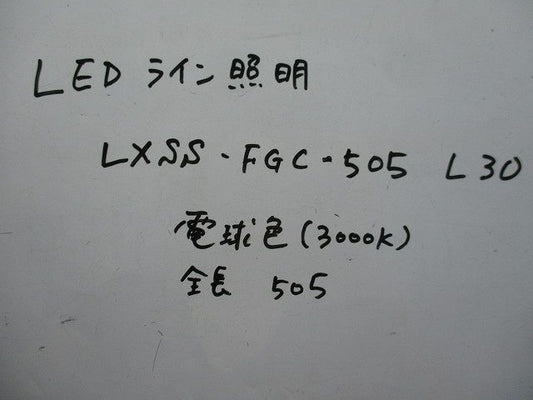 LED ライン照明
LXSS-FGC-505 L30
電球色(3000K)
全長 505